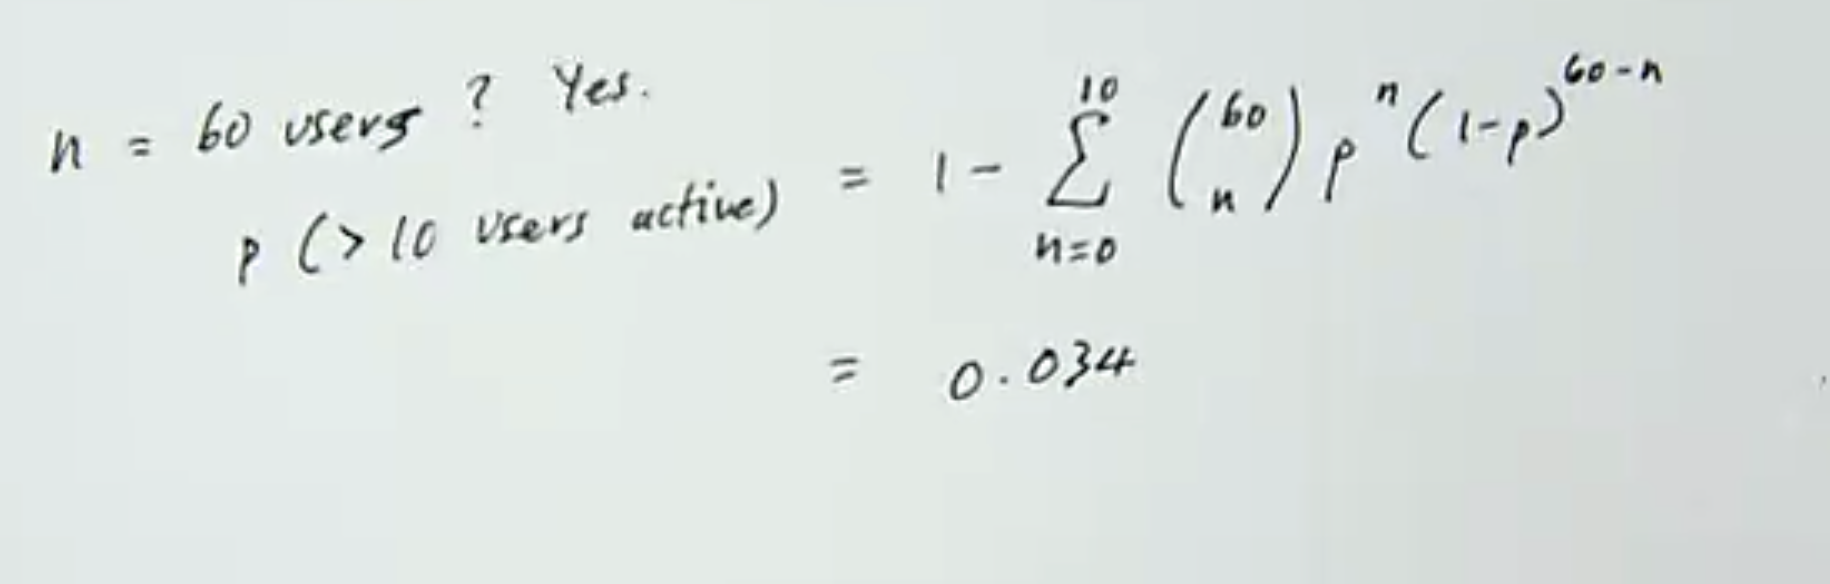 n = 60 users ? Yes.
p (> 10 users active) = 1 - \sum_{n=0}^{10} \binom{60}{n} p^n (1-p)^{60-n}
= 0.034